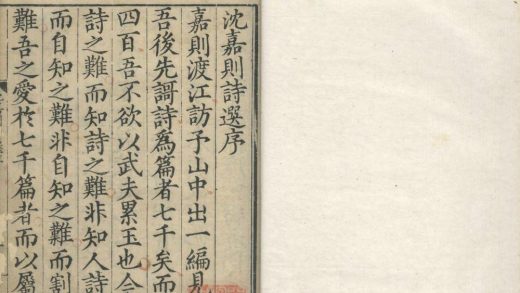 沈嘉則詩選序
嘉則渡江訪予山中出一編見
吾後先謌詩為篇者七千矣而
四百吾不欲以武夫累玉也今
詩之難而知詩之難非知人詩
而自知之難非自知之難而割
難吾之愛於七千篇者而以屬